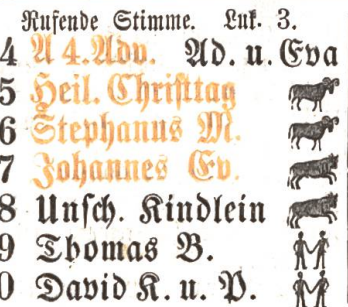 Rufende Stimme. Luk. 3.
4 A 4. Adv. Ad. u. Eva
5 Heil. Christtag
6 Stephanus M.
7 Johannes Ev.
8 Unsch. Kindlein
9 Thomas B.
0 David K. u. P.